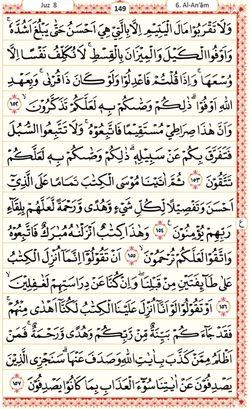 Juz 8
149
6. Al-An'âm
وَلَا تَقْرَبُوْا مَالَ الْيَتِيْمِ اِلَّا بِالَّتِيْ هِيَ اَحْسَنُ حَتّٰى يَبْلُغَ اَشُدَّهٗ ۚ
وَاَوْفُوا الْكَيْلَ وَالْمِيْزَانَ بِالْقِسْطِ ۚ لَا نُكَلِّفُ نَفْسًا اِلَّا
وُسْعَهَا ۚ وَاِذَا قُلْتُمْ فَاعْدِلُوْا وَلَوْ كَانَ ذَا قُرْبٰى ۚ وَبِعَهْدِ
اللّٰهِ اَوْفُوْا ؕ ذٰلِكُمْ وَصّٰىكُمْ بِهٖ لَعَلَّكُمْ تَذَكَّرُوْنَ ۙ ۱۵۲
وَاَنَّ هٰذَا صِرَاطِيْ مُسْتَقِيْمًا فَاتَّبِعُوْهُ ۚ وَلَا تَتَّبِعُوا السُّبُلَ
فَتَفَرَّقَ بِكُمْ عَنْ سَبِيْلِهٖ ؕ ذٰلِكُمْ وَصّٰىكُمْ بِهٖ لَعَلَّكُمْ
تَتَّقُوْنَ ۱۵۳ ثُمَّ اٰتَيْنَا مُوْسَى الْكِتٰبَ تَمَامًا عَلَى الَّذِيْٓ
اَحْسَنَ وَتَفْصِيْلًا لِّكُلِّ شَيْءٍ وَّهُدًى وَّرَحْمَةً لَّعَلَّهُمْ بِلِقَآءِ
ع
رَبِّهِمْ يُؤْمِنُوْنَ ۱۵۴ وَهٰذَا كِتٰبٌ اَنْزَلْنٰهُ مُبٰرَكٌ فَاتَّبِعُوْهُ
وَاتَّقُوْا لَعَلَّكُمْ تُرْحَمُوْنَ ۙ ۱۵۵ اَنْ تَقُوْلُوْٓا اِنَّمَآ اُنْزِلَ الْكِتٰبُ
عَلٰى طَآئِفَتَيْنِ مِنْ قَبْلِنَا ۪ وَاِنْ كُنَّا عَنْ دِرَاسَتِهِمْ لَغٰفِلِيْنَ ۙ
۱۵۶ اَوْ تَقُوْلُوْا لَوْ اَنَّآ اُنْزِلَ عَلَيْنَا الْكِتٰبُ لَكُنَّآ اَهْدٰى مِنْهُمْ ۚ
فَقَدْ جَآءَكُمْ بَيِّنَةٌ مِّنْ رَّبِّكُمْ وَهُدًى وَّرَحْمَةٌ ۚ فَمَنْ
اَظْلَمُ مِمَّنْ كَذَّبَ بِاٰيٰتِ اللّٰهِ وَصَدَفَ عَنْهَا ؕ سَنَجْزِى الَّذِيْنَ
يَصْدِفُوْنَ عَنْ اٰيٰتِنَا سُوْٓءَ الْعَذَابِ بِمَا كَانُوْا يَصْدِفُوْنَ ۱۵۷